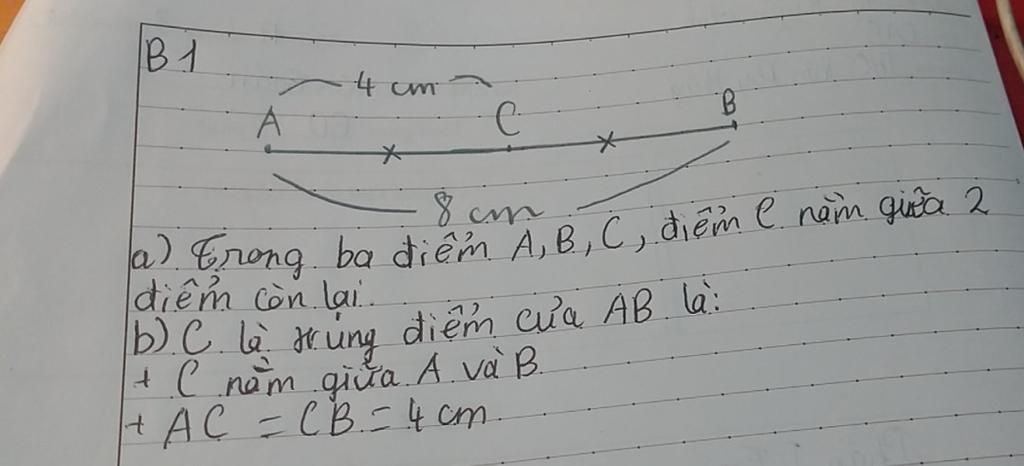 B1
4 cm
A C B
8 cm
a) Trong ba điểm A, B, C, điểm C nằm giữa 2
điểm còn lại.
b) C là trung điểm của AB là:
+ C nằm giữa A và B
+ AC = CB = 4 cm